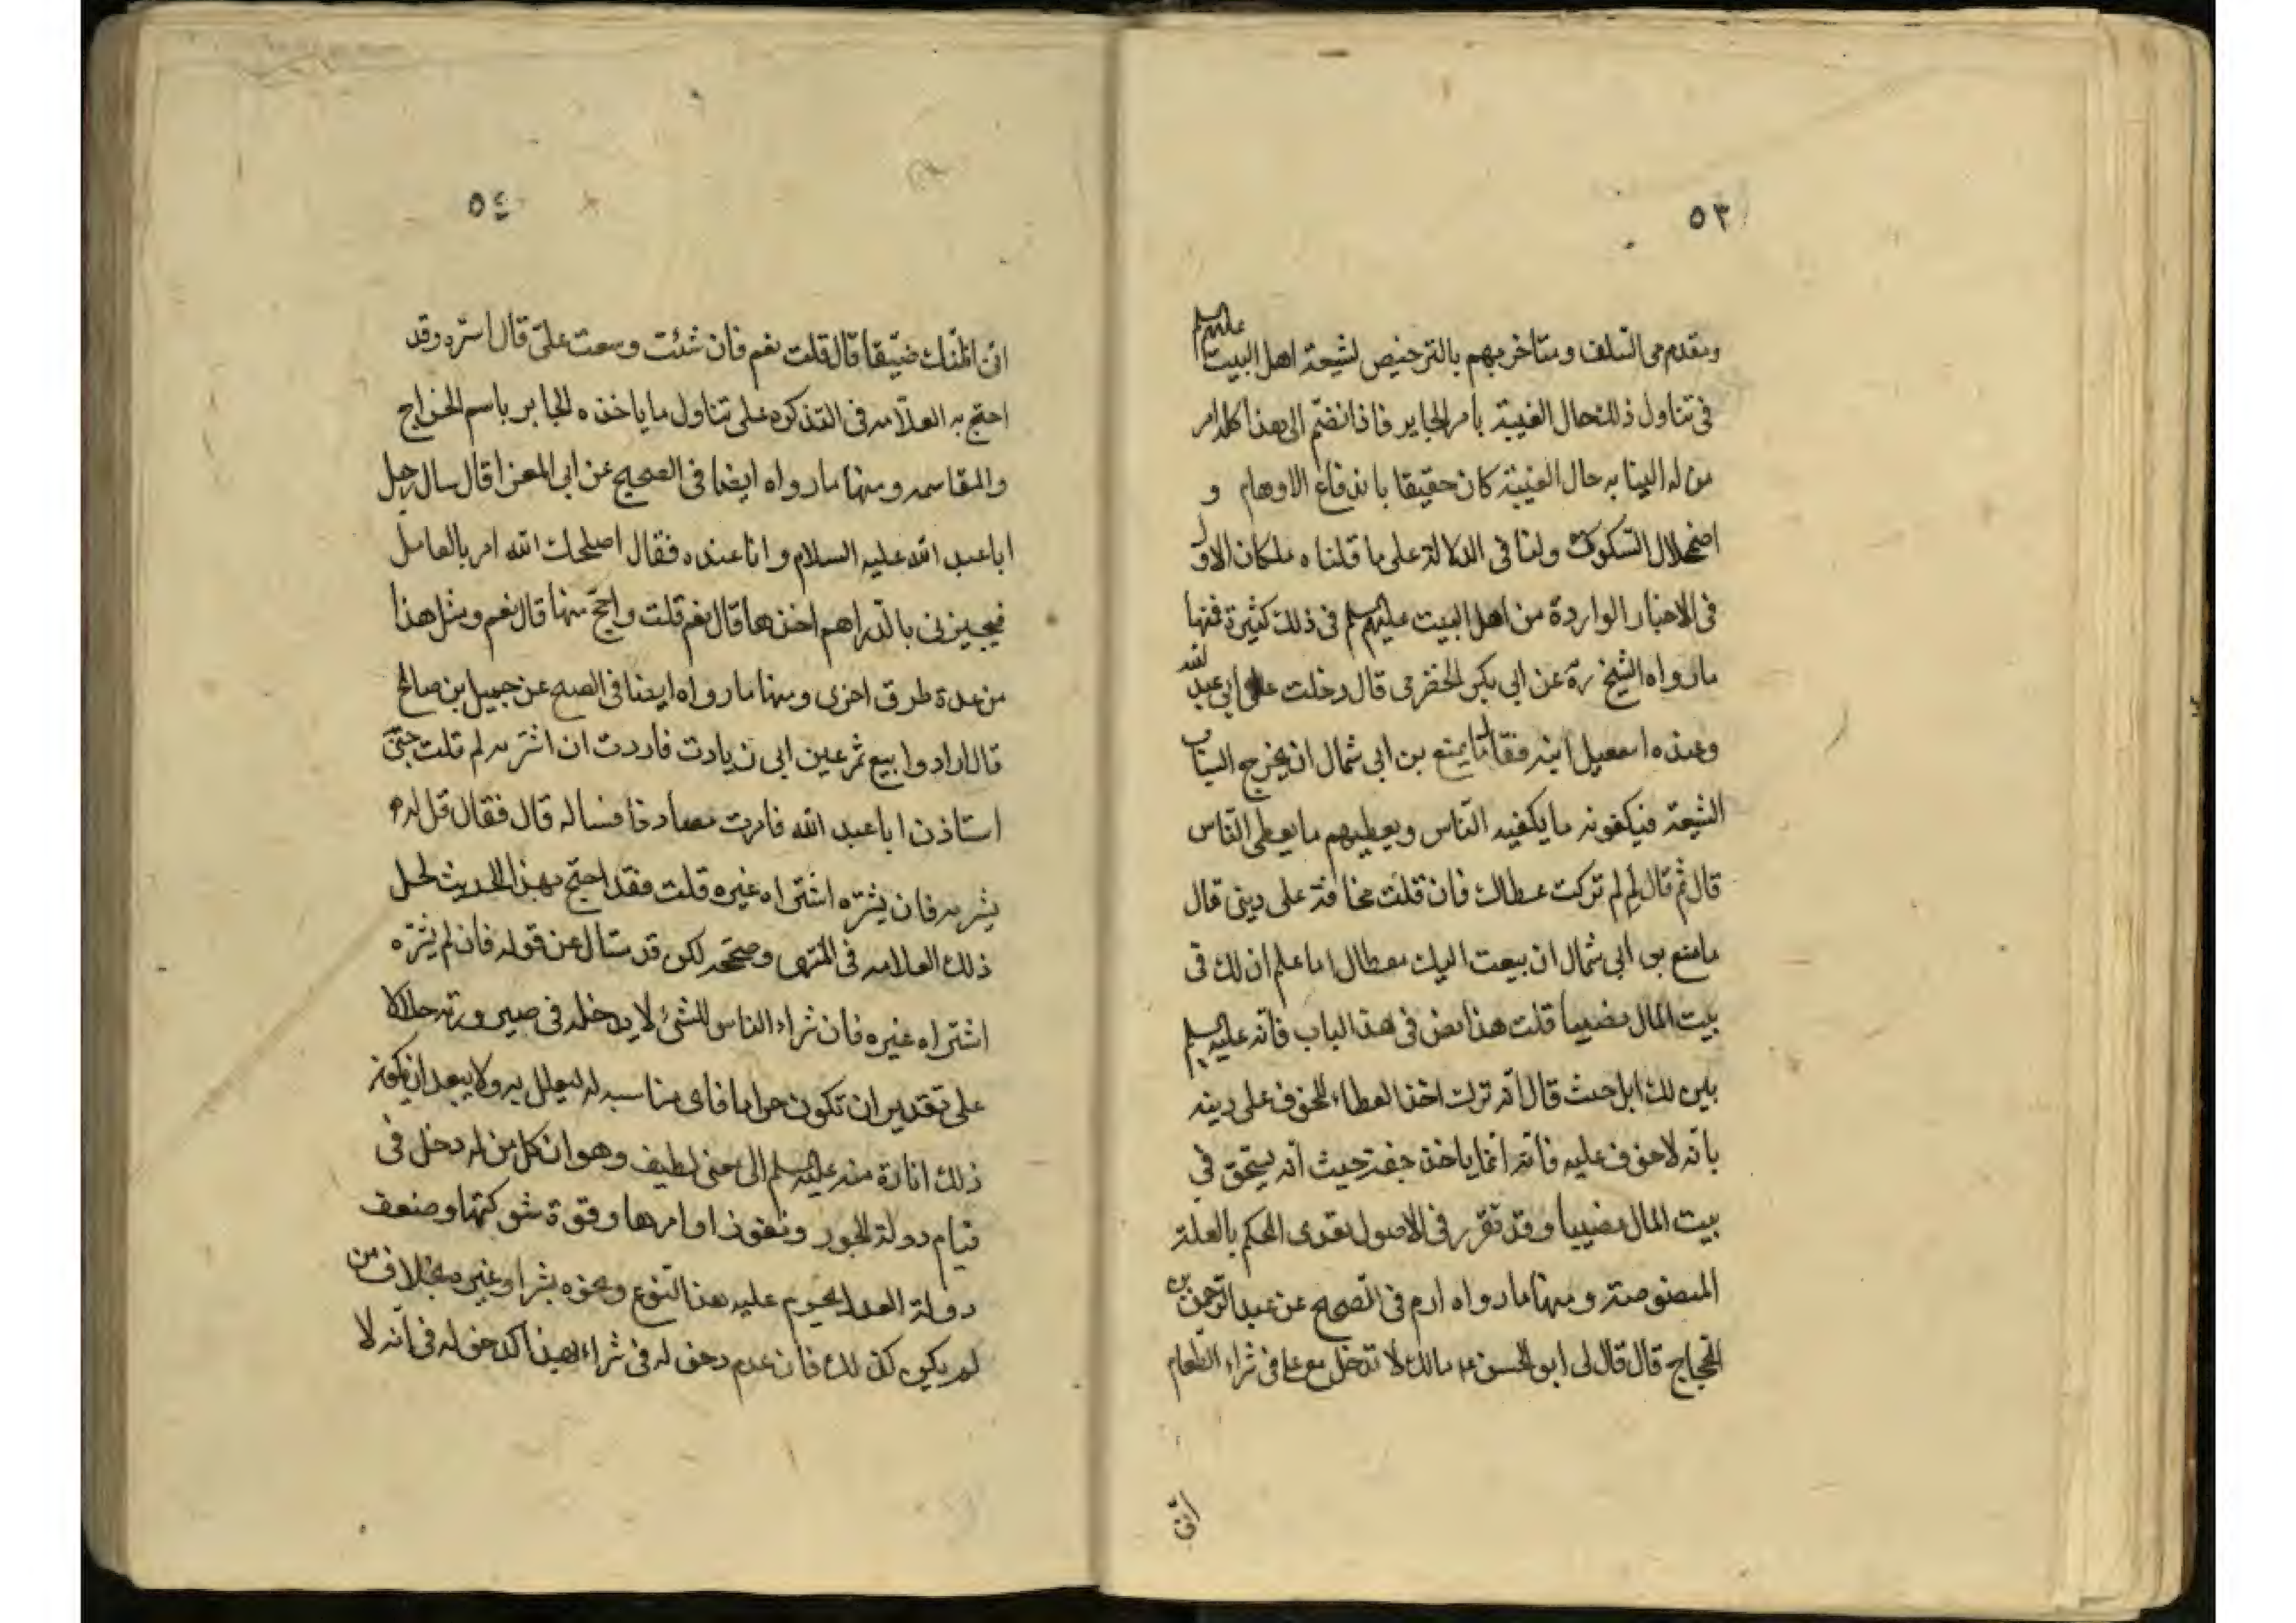 ٥٣
ومتقدمی السلف ومتاخریهم بالترخیص لشیعة اهل البیت علیهم السلم
فی تناول ذلك حال الغیبة بامر الجایر فاذا نضم الی هذا كله امر
من له النیابه حال الغیبة كان حقیقا باندفاع الاوهام و
اضمحلال الشكوك ولنا فی الدلالة علی ما قلناه ملكان الاول
فی الاخبار الواردة من اهل البیت علیهم السلم فی ذلك كثیرة فمنها
مارواه الشیخ ره عن ابی بكر الحضرمی قال دخلت علی ابی عبد الله
وعنده اسمعیل ابنه فقال ما یمنع بن ابی شمال ان یخرج الساب
الشیعة فیكفونه ما یكفیه الناس ویعطیهم ما یعطی الناس
قال ثم قال لی لم تركت عطاك فان قلت مخافة علی دینی قال
مامنع بن ابی شمال ان یبعث الیك بعطال اما علم ان لك فی
بیت المال نصیبا قلت هذا نص فی هذا الباب فانه علیه السلم
بین لك ابل حیث قال انه ترك اخذ العطاء للخوف علی دینه
بانه لا خوف علیه فانه انما یاخذ حقه حیث انه یستحق فی
بیت المال نصیبا وقد تقرر فی الاصول تعدی الحكم بالعلة
المنصوصة ومنها مارواه ارم فی الصحیح عن عبد الرحمن بن
الحجاج قال قال لی ابو الحسن ع مالك لا تدخل مع علی فی شراء الطعام
انی
٥٤
انی اظنك ضیقا قال قلت نعم فان شئت وسعت علی قال اشتره وقد
احتج به العلامه فی التذكره علی تناول ما یاخذه الجابر باسم الخراج
والمقاسمه ومنها مارواه ایضا فی الصحیح عن ابی المعزا قال سال رجل
ابا عبد الله علیه السلام وانا عنده فقال اصلحك الله امر بالعامل
فیجیزنی بالدراهم اخذها قال نعم قلت واحج منها قال نعم ومثل هذا
من عدة طرق اخری ومنها مارواه ایضا فی الصحیح عن جمیل بن صالح
قال ارادوا بیع تمر عین ابی زیادت فاردت ان اشتریه ثم قلت حتی
استاذن ابا عبد الله فامرت مصادفا فساله قال فقال قل له
یشریه فان یشتره اشتراه غیره قلت فقد احتج بهذا الحدیث لحل
ذلك العلامه فی المنتهی وصححه لكن قد یسال عن قوله فان لم یشتره
اشتراه غیره فان شراء الناس للشیء لا یدخله فی صیرورته حلالا
علی تقدیر ان تكون حراما فای مناسبه له لیعلل به ولا یبعد ان یكون
ذلك اشارة منه علیه السلم الی معنی لطیف وهو ان كل من له دخل فی
قیام دولة الجور ونفوذ اوامرها وقوة شوكتها وضعف
دولة العدل یحرم علیه هذا النوع ونحوه بشرا وغیره بخلاف من
لم یكن كذلك فان عدم دخوله فی شراء هذا كدخوله فی انه لا